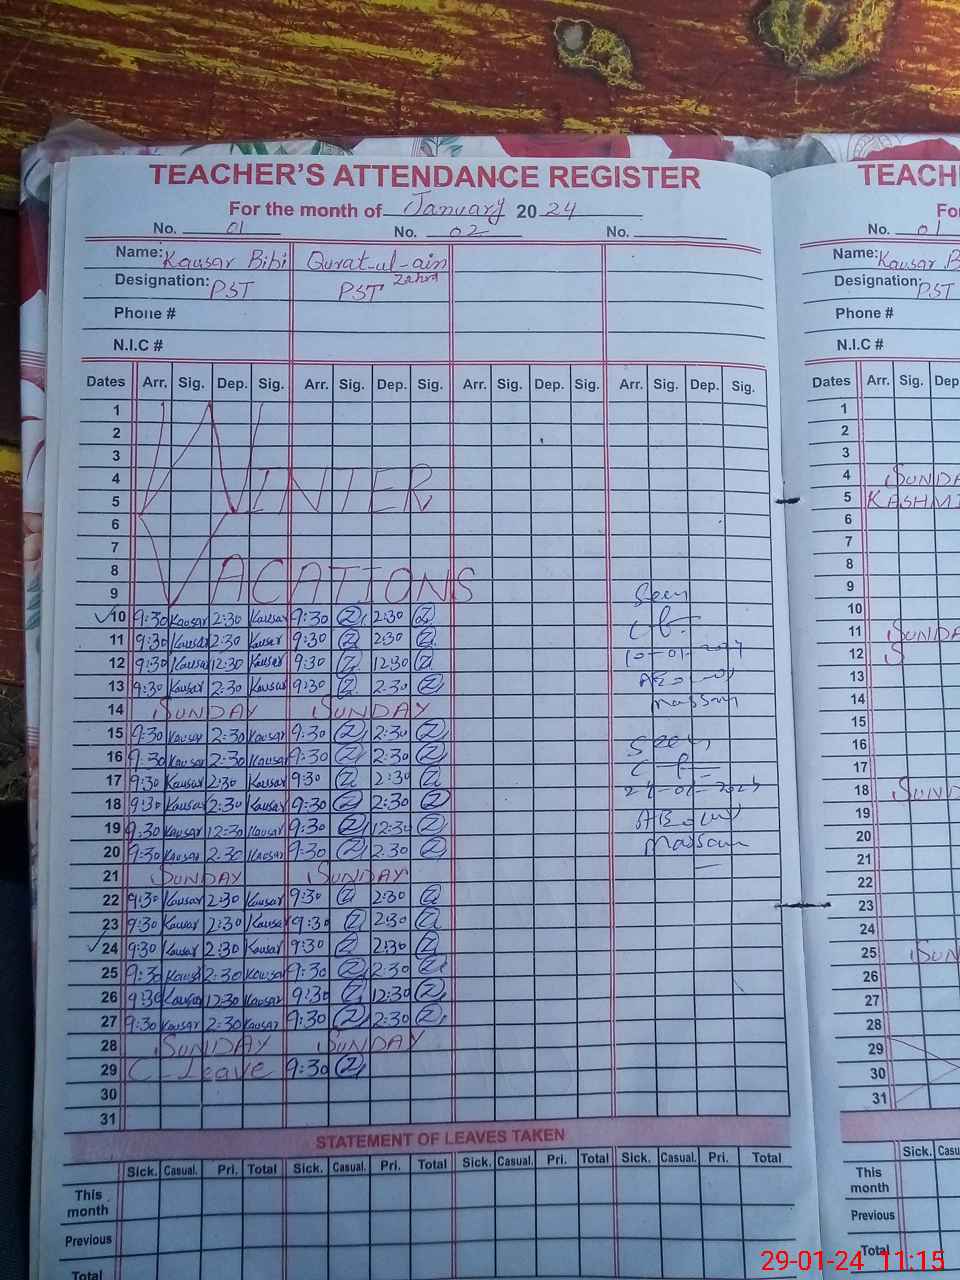 TEACHER'S ATTENDANCE REGISTER
For the month of January 20 24
No. 01 No. 02 No.
Name: Kausar Bibi Qurat-ul-ain Zahra
Designation: PST PST
Phone #
N.I.C #
Dates Arr. Sig. Dep. Sig. Arr. Sig. Dep. Sig. Arr. Sig. Dep. Sig. Arr. Sig. Dep. Sig.
1
2
3
4
5
WINTER
6
7
8
9
VACATIONS
10 9:30 Kausar 2:30 Kausar 9:30 Z 2:30 Z
11 9:30 Kausar 2:30 Kausar 9:30 Z 2:30 Z
12 9:30 Kausar 12:30 Kausar 9:30 Z 12:30 Z
13 9:30 Kausar 2:30 Kausar 9:30 Z 2:30 Z
14 SUNDAY SUNDAY
15 9:30 Kausar 2:30 Kausar 9:30 Z 2:30 Z
16 9:30 Kausar 2:30 Kausar 9:30 Z 2:30 Z
17 9:30 Kausar 2:30 Kausar 9:30 Z 2:30 Z
18 9:30 Kausar 2:30 Kausar 9:30 Z 2:30 Z
19 9:30 Kausar 12:30 Kausar 9:30 Z 12:30 Z
20 9:30 Kausar 2:30 Kausar 9:30 Z 2:30 Z
21 SUNDAY SUNDAY
22 9:30 Kausar 2:30 Kausar 9:30 Z 2:30 Z
23 9:30 Kausar 2:30 Kausar 9:30 Z 2:30 Z
24 9:30 Kausar 2:30 Kausar 9:30 Z 2:30 Z
25 9:30 Kausar 2:30 Kausar 9:30 Z 2:30 Z
26 9:30 Kausar 12:30 Kausar 9:30 Z 12:30 Z
27 9:30 Kausar 2:30 Kausar 9:30 Z 2:30 Z
28 SUNDAY SUNDAY
29 C-Leave 9:30 Z
30
31
Seen
10-01-2024
Seen
24-01-2024
STATEMENT OF LEAVES TAKEN
Sick. Casual. Pri. Total Sick. Casual. Pri. Total Sick. Casual. Pri. Total Sick. Casual. Pri. Total
This month
Previous
Total
TEACH
No. 01
Name: Kausar B
Designation: PST
Phone #
N.I.C #
Dates Arr. Sig. Dep
1
2
3
4 SUNDA
5 KASHMI
6
7
8
9
10
11 SUNDA
12 S
13
14
15
16
17
18 SUND
19
20
21
22
23
24
25 SUN
26
27
28
29
30
31
Sick. Casu
This month
Previous
Total
29-01-24 11:15